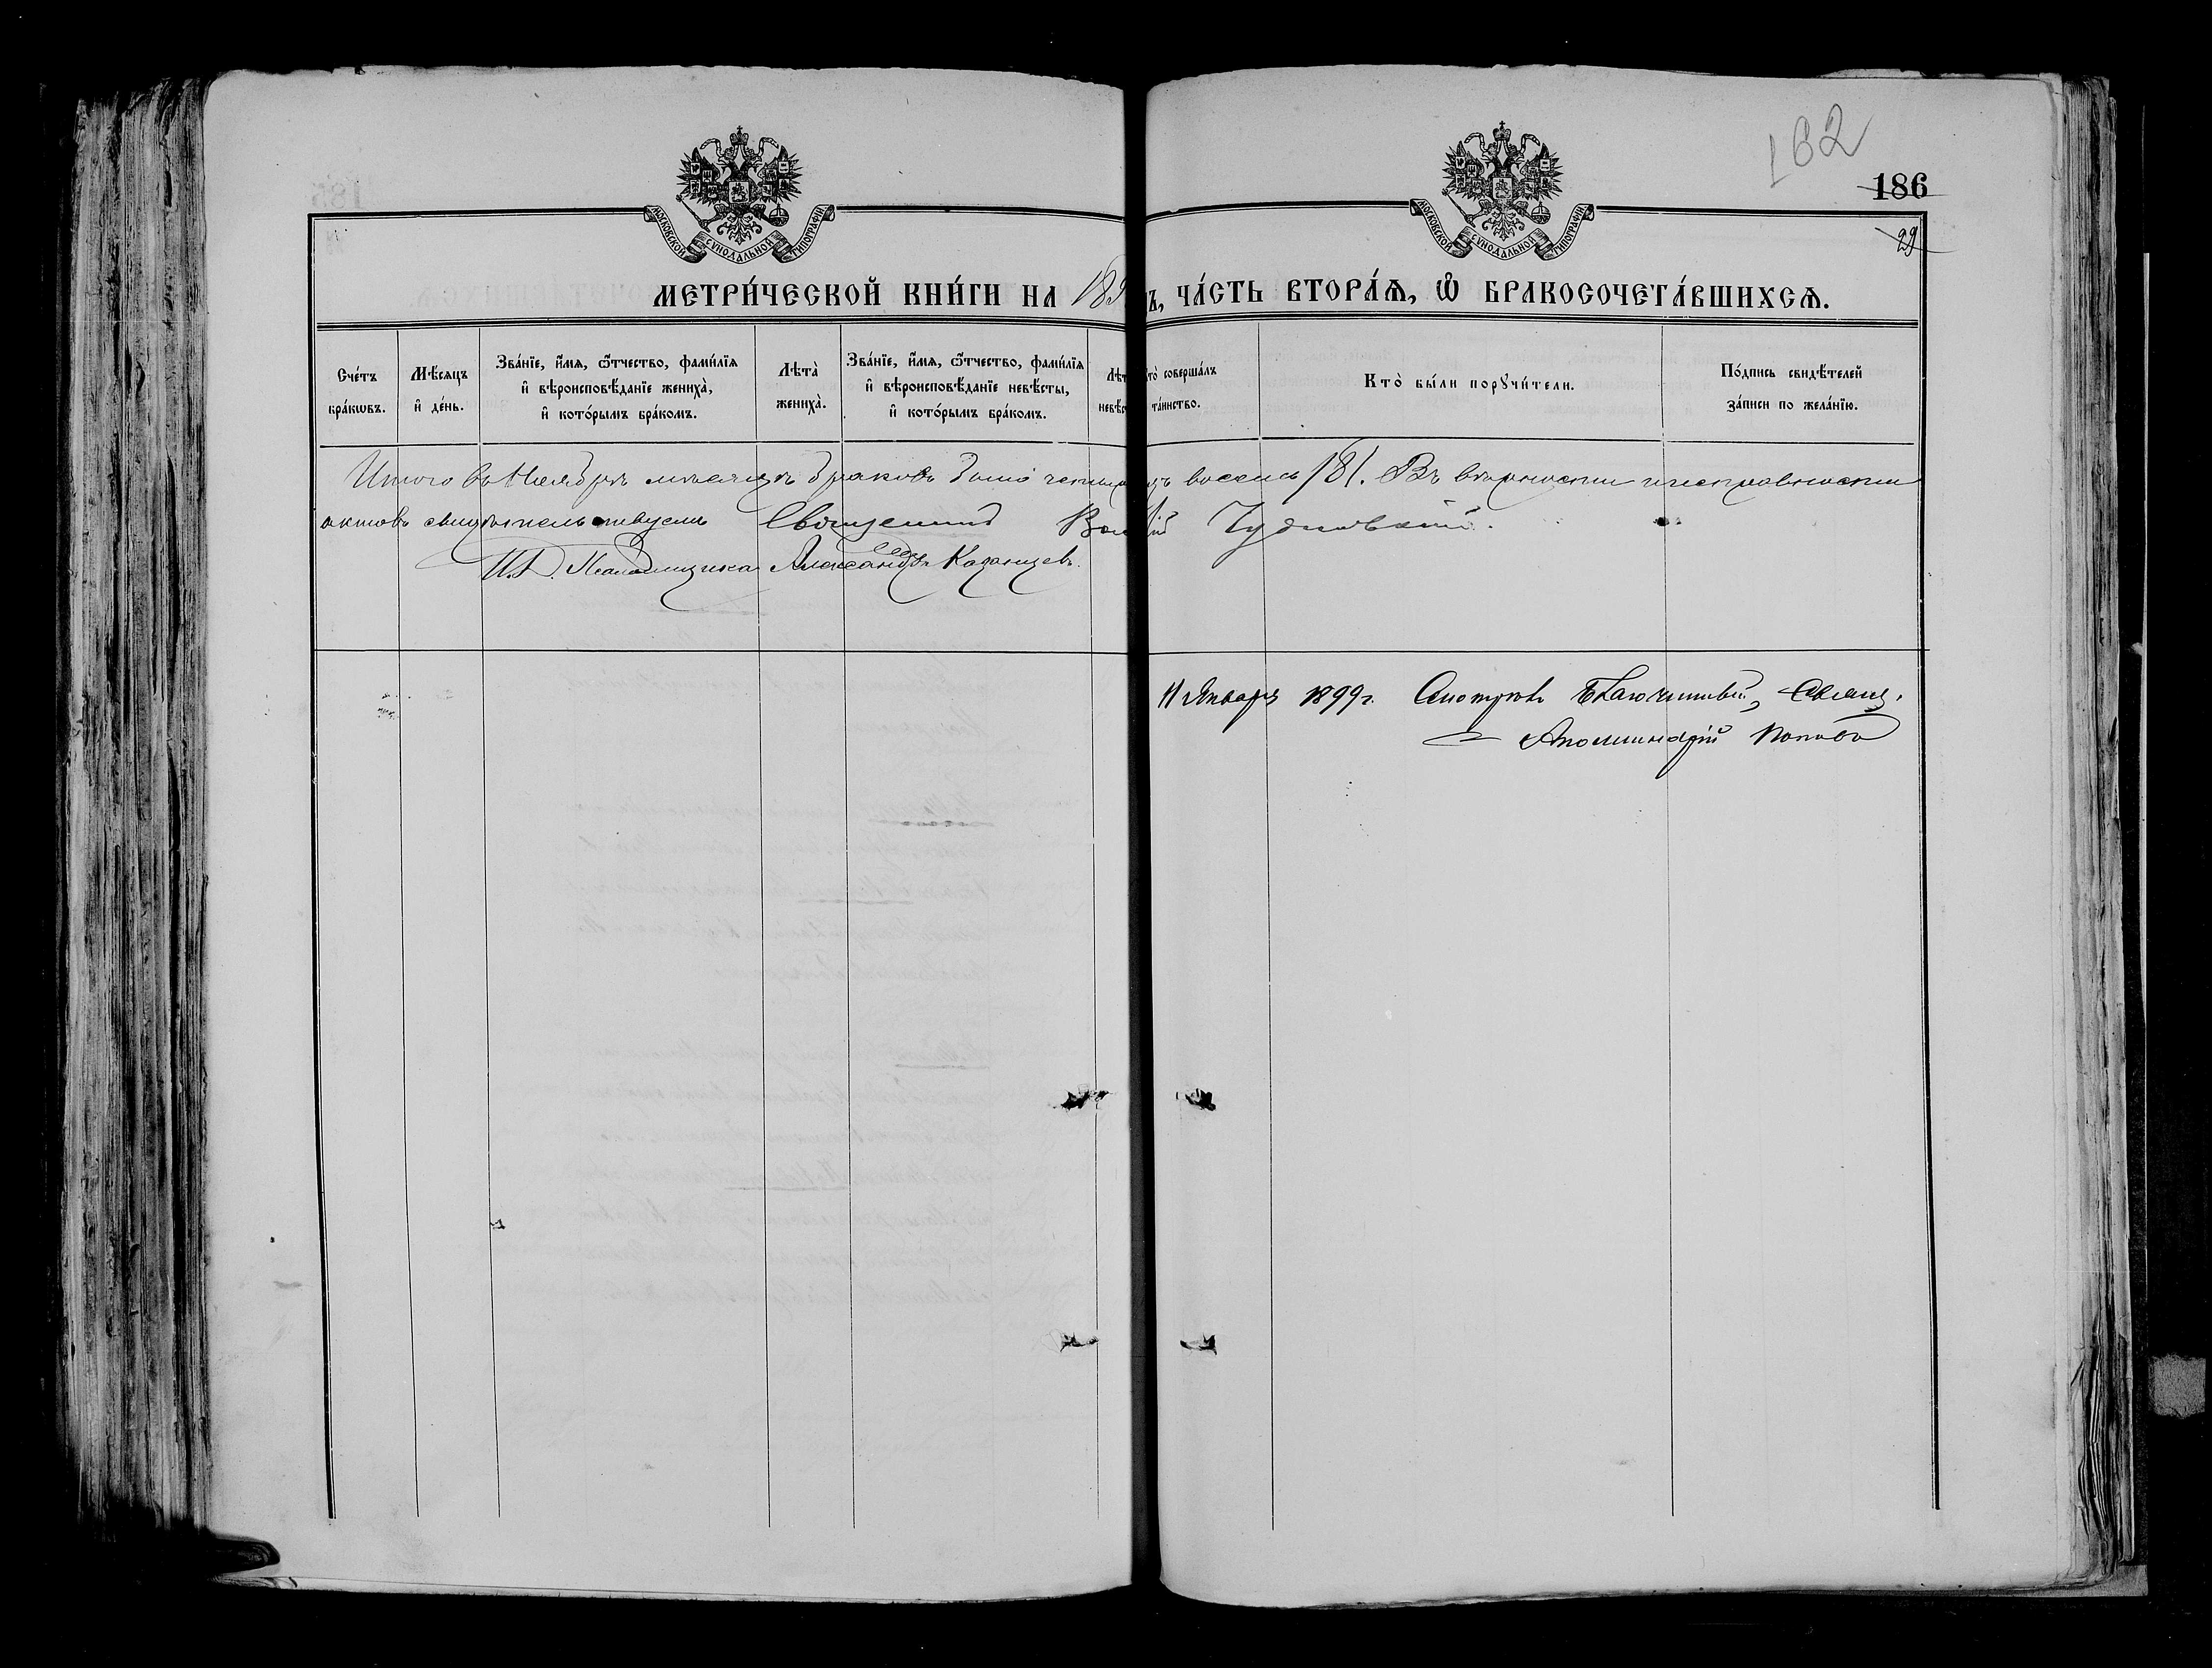 162
186
29
МОСКОВСКОЙ СѴНОДАЛЬНОЙ ТИПОГРАФІИ
МОСКОВСКОЙ СѴНОДАЛЬНОЙ ТИПОГРАФІИ
МЕТРИ́ЧЕСКОЙ КНИ́ГИ НА 189 ъ, ЧА́СТЬ ВТОРА́Ѧ, Ѡ҆ БРАКОСОЧЕТА́ВШИХСѦ.
Сче́тъ бра́кѡвъ.
Мѣ́сяцъ и҆ де́нь.
Зва́нїе, и҆́мя, ѻ҆́тчество, фами́лїя и҆ вѣроисповѣ́данїе жениха̀, и҆ кото́рымъ бра́комъ.
Лѣта̀ жениха̀.
Зва́нїе, и҆́мя, ѻ҆́тчество, фами́лїя и҆ вѣроисповѣ́данїе невѣ́сты, и҆ кото́рымъ бра́комъ.
Лѣт невѣс
то̀ соверша́лъ та́инство.
Кто̀ бы́ли порꙋчи́тели.
По́дпись свидѣ́телей за́писи по жела́нїю.
Итого въ Ноябрѣ мѣсяцѣ браковъ было восемь /8/. Въ вѣрности и исправности
актовъ свидѣтельствуемъ Священникъ Чудновскій.
И. д. Псаломщика Александръ Казанцевъ.
11 Января 1899 г. Смотрѣлъ Благочинный, Священ.
Аполлинарій Поповъ